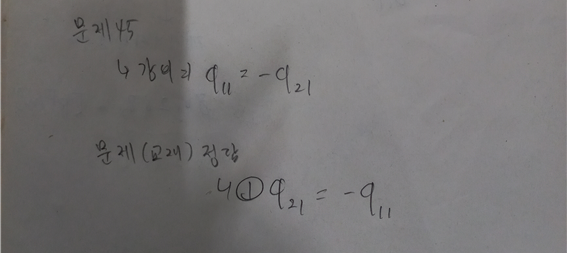 문제45
↳ 강의의 q₁₁ = -q₂₁
문제(교재) 정답
↳ ① q₂₁ = -q₁₁